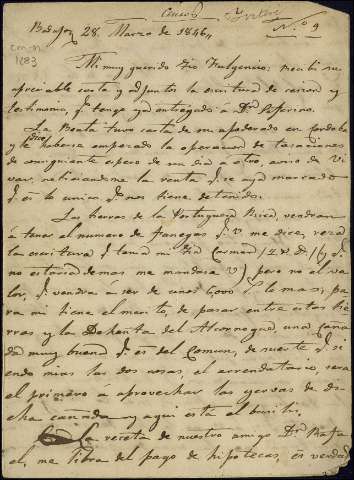 N.º 9
Badajoz 28 Marzo de 1846,,
Mi muy querido Tio Fulgencio: recibi su
apreciable carta y adjunta la escritura de
testimonio, qº tengo ya entregado á Dn
La Beata tuvo carta de su apoderado en Cordoba
y le haberse empezado la operacion de tasaciones
de consiguiente espero de un dia á otro, aviso de
noticiandome la renta qº se aya marcado
qº es lo unico qº nos tiene detenidos.
Las tierras de la Portuguesa Rica, vendran
á tener el numero de fanegas qº V me dice, verá
la escritura qº tomó mi Tio (y qº
no estaría de mas me mandase V) pero no el va-
lor, qº vendra á ser de unos 6000 lo mas, pa-
ra mi tiene el merito, de pasar entre estas tier-
ras y la Dehesita del Alcornoque, una caña-
da muy buena qº es del Comun, de suerte qº si-
endo mias las dos cosas, el arrendatario, sera
el primero á aprovechar las yerbas de di-
cha cañada y aqui está el busilis.
La receta de nuestro amigo Dn Rafa-
el, me libra del pago de hipotecas, es verdad